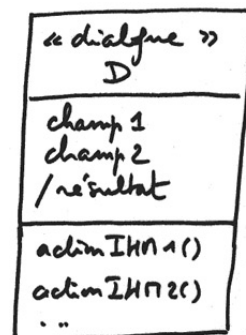 « dialogue »
D
champ 1
champ 2
/ résultat
action IHM 1()
action IHM 2()
...